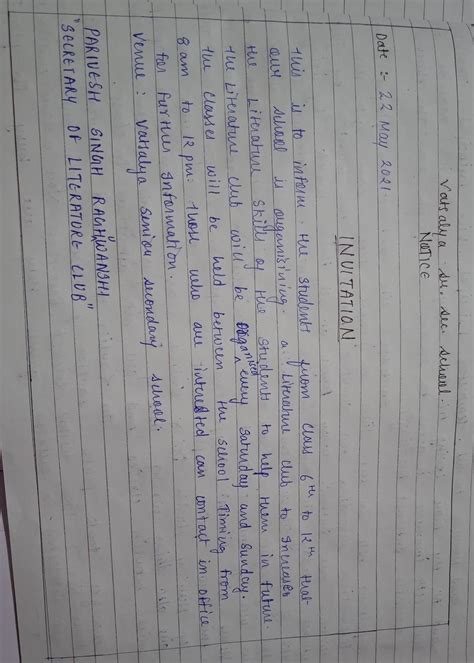 Vatsalya sr. sec. school
NOTICE
Date :- 22 May 2021
INVITATION
This is to inform the students from class 6th to 12th that
our school is organisining a literature club to increases
the literature skills of the students to help them in future.
the literature club will be organized every saturday and sunday.
the classes will be held between the school timing from
8 am to 12 pm. those who are interested can contact in office
for further information.
venue : Vatsalya senior secondary school.
PARIVESH SINGH RAGHUWANSHI
"SECRETARY OF LITERATURE CLUB"